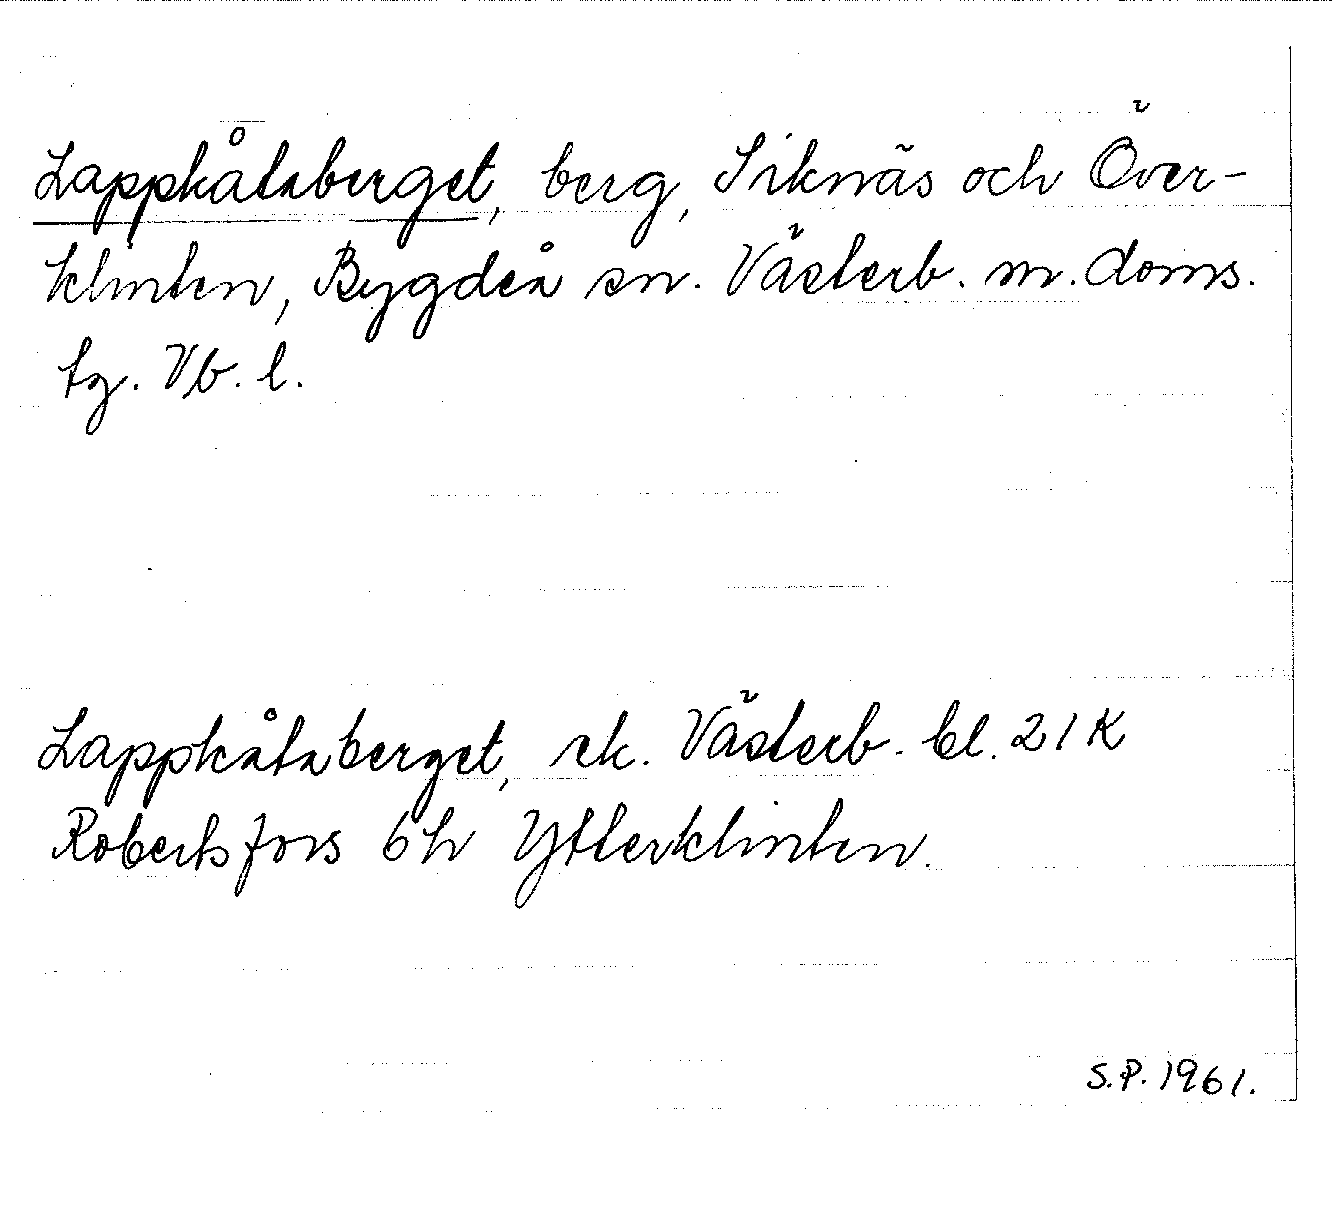 Lappkåtaberget, berg, Siknäs och Över-
klinten, Bygdeå sn. Västerb. m. doms.
tg. Vb. l.
Lappkåtaberget, ek. Västerb. bl. 21K
Robertsfors 6h Ytterklinten.
S.P. 1961.